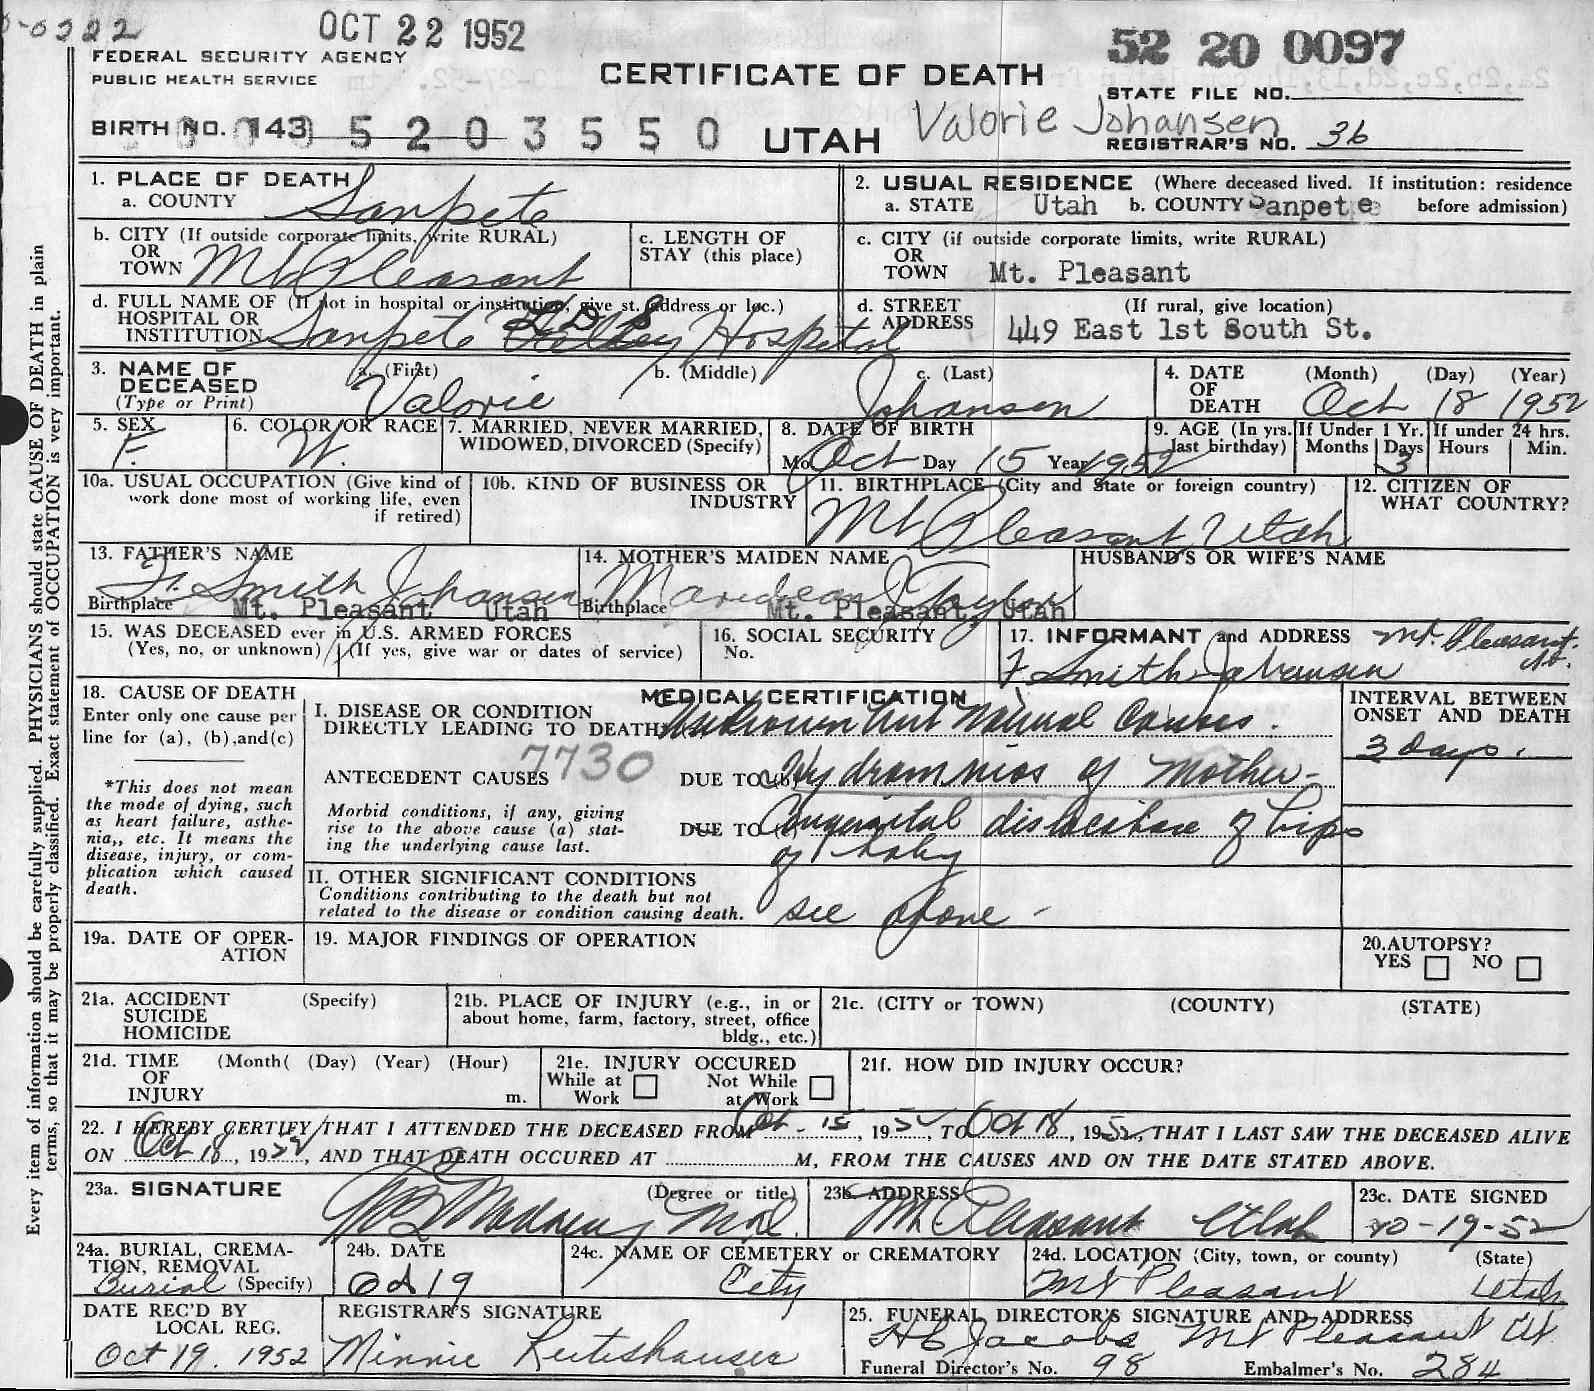 OCT 22 1952
52 20 0097
FEDERAL SECURITY AGENCY
PUBLIC HEALTH SERVICE
CERTIFICATE OF DEATH
STATE FILE NO.
BIRTH NO. 143 5 2 0 3 5 5 0
UTAH
Valorie Johansen
REGISTRAR'S NO. 36
1. PLACE OF DEATH
a. COUNTY Sanpete
2. USUAL RESIDENCE (Where deceased lived. If institution: residence before admission)
a. STATE Utah b. COUNTY Sanpete
b. CITY (If outside corporate limits, write RURAL)
OR
TOWN Mt Pleasant
c. LENGTH OF
STAY (this place)
c. CITY (if outside corporate limits, write RURAL)
OR
TOWN Mt. Pleasant
d. FULL NAME OF (If not in hospital or institution, give st. address or loc.)
HOSPITAL OR
INSTITUTION Sanpete L D S Hospital
d. STREET (If rural, give location)
ADDRESS 449 East 1st South St.
3. NAME OF
DECEASED
(Type or Print)
a. (First) Valorie
b. (Middle)
c. (Last) Johansen
4. DATE (Month) (Day) (Year)
OF
DEATH Oct 18 1952
5. SEX
F.
6. COLOR OR RACE
W.
7. MARRIED, NEVER MARRIED,
WIDOWED, DIVORCED (Specify)
8. DATE OF BIRTH
Mo Oct Day 15 Year 1952
9. AGE (In yrs. last birthday)
If Under 1 Yr.
Months Days
3
If under 24 hrs.
Hours Min.
10a. USUAL OCCUPATION (Give kind of
work done most of working life, even
if retired)
10b. KIND OF BUSINESS OR
INDUSTRY
11. BIRTHPLACE (City and State or foreign country)
Mt Pleasant Utah
12. CITIZEN OF
WHAT COUNTRY?
13. FATHER'S NAME
F. Smith Johansen
Birthplace Mt. Pleasant Utah
14. MOTHER'S MAIDEN NAME
Maridean J. Taylor
Birthplace Mt. Pleasant, Utah
HUSBAND'S OR WIFE'S NAME
15. WAS DECEASED ever in U.S. ARMED FORCES
(Yes, no, or unknown) (If yes, give war or dates of service)
16. SOCIAL SECURITY
No.
17. INFORMANT and ADDRESS Mt. Pleasant.
F Smith Johansen
18. CAUSE OF DEATH
Enter only one cause per
line for (a), (b),and(c)
*This does not mean
the mode of dying, such
as heart failure, asthe-
nia,, etc. It means the
disease, injury, or com-
plication which caused
death.
MEDICAL CERTIFICATION
I. DISEASE OR CONDITION
DIRECTLY LEADING TO DEATH Unknown but Natural Causes.
ANTECEDENT CAUSES 7730
DUE TO (b) Hydramnios of Mother-
Morbid conditions, if any, giving
rise to the above cause (a) stat-
ing the underlying cause last.
DUE TO (c) Congenital dislocation of hips
of baby
II. OTHER SIGNIFICANT CONDITIONS
Conditions contributing to the death but not
related to the disease or condition causing death.
see above -
INTERVAL BETWEEN
ONSET AND DEATH
3 days.
19a. DATE OF OPER-
ATION
19. MAJOR FINDINGS OF OPERATION
20.AUTOPSY?
YES NO
21a. ACCIDENT (Specify)
SUICIDE
HOMICIDE
21b. PLACE OF INJURY (e.g., in or
about home, farm, factory, street, office
bldg., etc.)
21c. (CITY or TOWN) (COUNTY) (STATE)
21d. TIME (Month( (Day) (Year) (Hour)
OF
INJURY m.
21e. INJURY OCCURED
While at Work Not While at Work
21f. HOW DID INJURY OCCUR?
22. I HEREBY CERTIFY THAT I ATTENDED THE DECEASED FROM Oct - 15, 1952, TO Oct 18, 1952, THAT I LAST SAW THE DECEASED ALIVE
ON Oct 18, 1952, AND THAT DEATH OCCURED AT M, FROM THE CAUSES AND ON THE DATE STATED ABOVE.
23a. SIGNATURE (Degree or title)
Madsen M.D.
23b. ADDRESS
Mt Pleasant Utah
23c. DATE SIGNED
10-19-52
24a. BURIAL, CREMA-
TION, REMOVAL
Burial (Specify)
24b. DATE
Oct 19
24c. NAME OF CEMETERY OR CREMATORY
City
24d. LOCATION (City, town, or county) (State)
Mt Pleasant Utah
DATE REC'D BY
LOCAL REG.
Oct 19. 1952
REGISTRAR'S SIGNATURE
Minnie
25. FUNERAL DIRECTOR'S SIGNATURE AND ADDRESS
H C Jacobs Mt Pleasant Ut.
Funeral Director's No. 98 Embalmer's No. 284
Every item of information should be carefully supplied. PHYSICIANS should state CAUSE OF DEATH in plain
terms, so that it may be properly classified. Exact statement of OCCUPATION is very important.